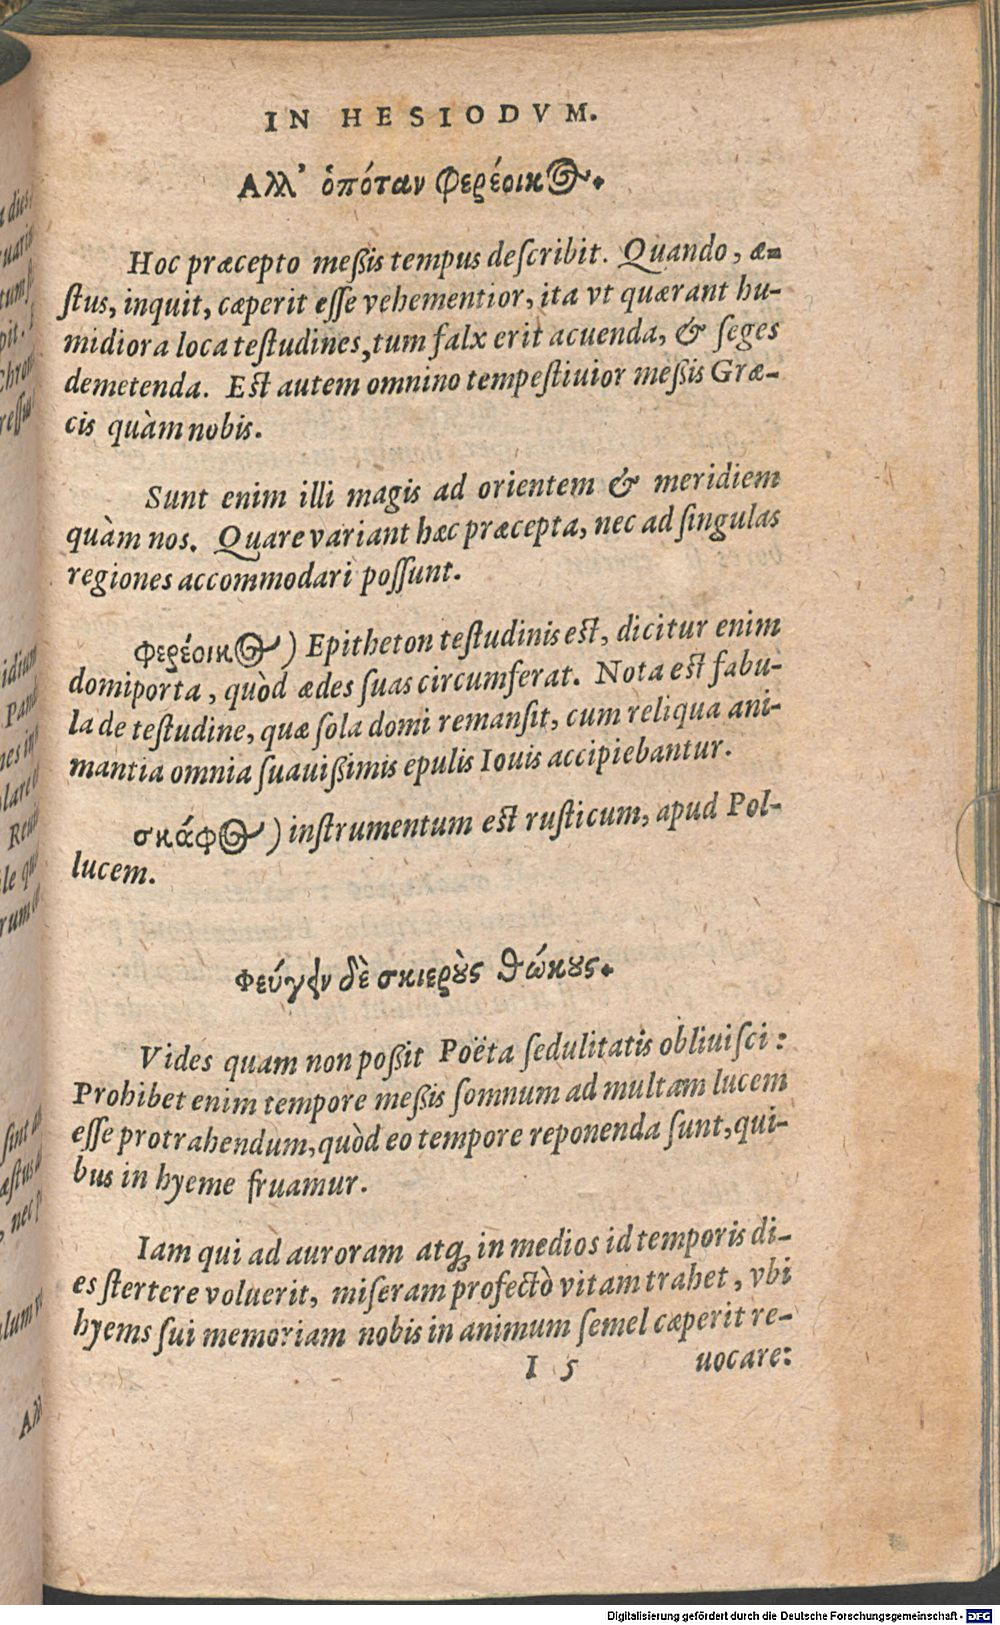 IN HESIODVM.
Αλλ' ὁπόταν φερέοικος.
Hoc præcepto meßis tempus deſcribit. Quando, æ-
ſtus, inquit, cæperit eſſe vehementior, ita vt quærant hu-
midiora loca teſtudines, tum falx erit acuenda, & ſeges
demetenda. Eſt autem omnino tempeſtiuior meßis Græ-
cis quàm nobis.
Sunt enim illi magis ad orientem & meridiem
quàm nos. Quare variant hæc præcepta, nec ad ſingulas
regiones accommodari poſſunt.
φερέοικος) Epitheton teſtudinis eſt, dicitur enim
domiporta, quòd ædes ſuas circumferat. Nota eſt fabu-
la de teſtudine, quæ ſola domi remanſit, cum reliqua ani-
mantia omnia ſuauißimis epulis Iouis accipiebantur.
σκάφος) inſtrumentum eſt ruſticum, apud Pol-
lucem.
φεύγειν δὲ σκιεροὺς θώκους.
Vides quam non poßit Poëta ſedulitatis obliuiſci:
Prohibet enim tempore meßis ſomnum ad multam lucem
eſſe protrahendum, quòd eo tempore reponenda ſunt, qui-
bus in hyeme fruamur.
Iam qui ad auroram atq́; in medios id temporis di-
es ſtertere voluerit, miſeram profectò vitam trahet, vbi
hyems ſui memoriam nobis in animum ſemel cæperit re-
I 5 uocare:
Digitalisierung gefördert durch die Deutsche Forschungsgemeinschaft - DFG